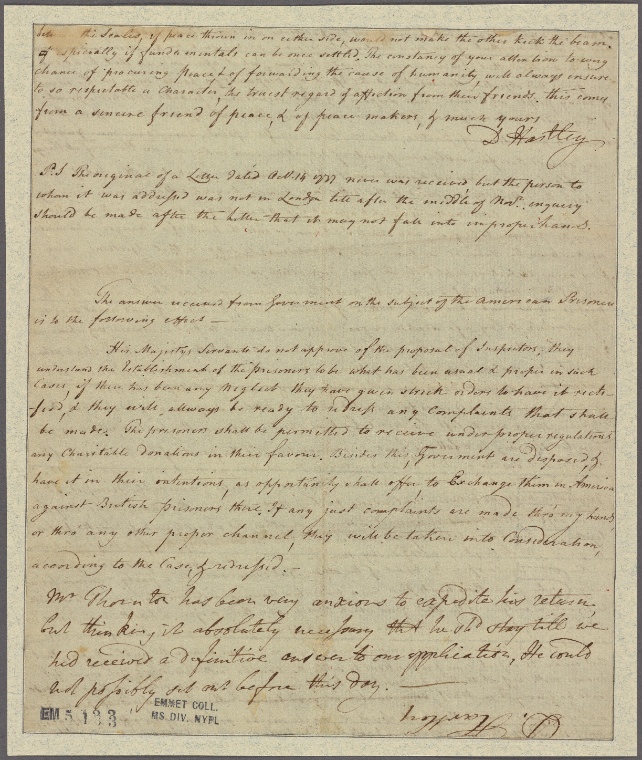 the Scales, if peace thrown in on either side, would not make the other kick the beam.
especially if fundamentals can be once settled. The constancy of your attention to every
chance of procuring peace & of forwarding the cause of humanity will always ensure
to so respectable a Character, the truest regard & affection from their friends. this comes
from a sincere friend of peace, & of peace makers, & much yours
D Hartley
P.S The original of a Letter dated Octr. 14 1777 never was received, but the person to
whom it was addressed was not in London till after the middle of Novr. inquiry
should be made after the letter that it may not fall into improper hands.
The answer received from Goverment on the subject of the American Prisoners
is to the following effect —
His Majestys Servants do not approve of the proposal of Inspectors; they
understand the Establishment of the prisoners to be what has been usual & proper in such
Cases, if there has been any Neglect they have given strict orders to have it recti-
fied, & they will allways be ready to redress any Complaints that shall
be made. The prisoners shall be permitted to receive under proper regulations
any Charitable donations in their favour. Besides this, Goverment are disposed, &
have it in their intentions, as opportunity shall offer to Exchange them in America
against British prisoners there. If any just complaints are made thro' my hands
or thro' any other proper channel, they will be taken into Consideration,
according to the Case, & redressed. —
Mr Thornton has been very anxious to expedite his return,
but thinking it absolutely necessary that he shd stay till we
had received a definitive answer to our application, He could
not possibly set out before this day. —
D. Hartley
EM 5133
EMMET COLL.
MS. DIV. NYPL